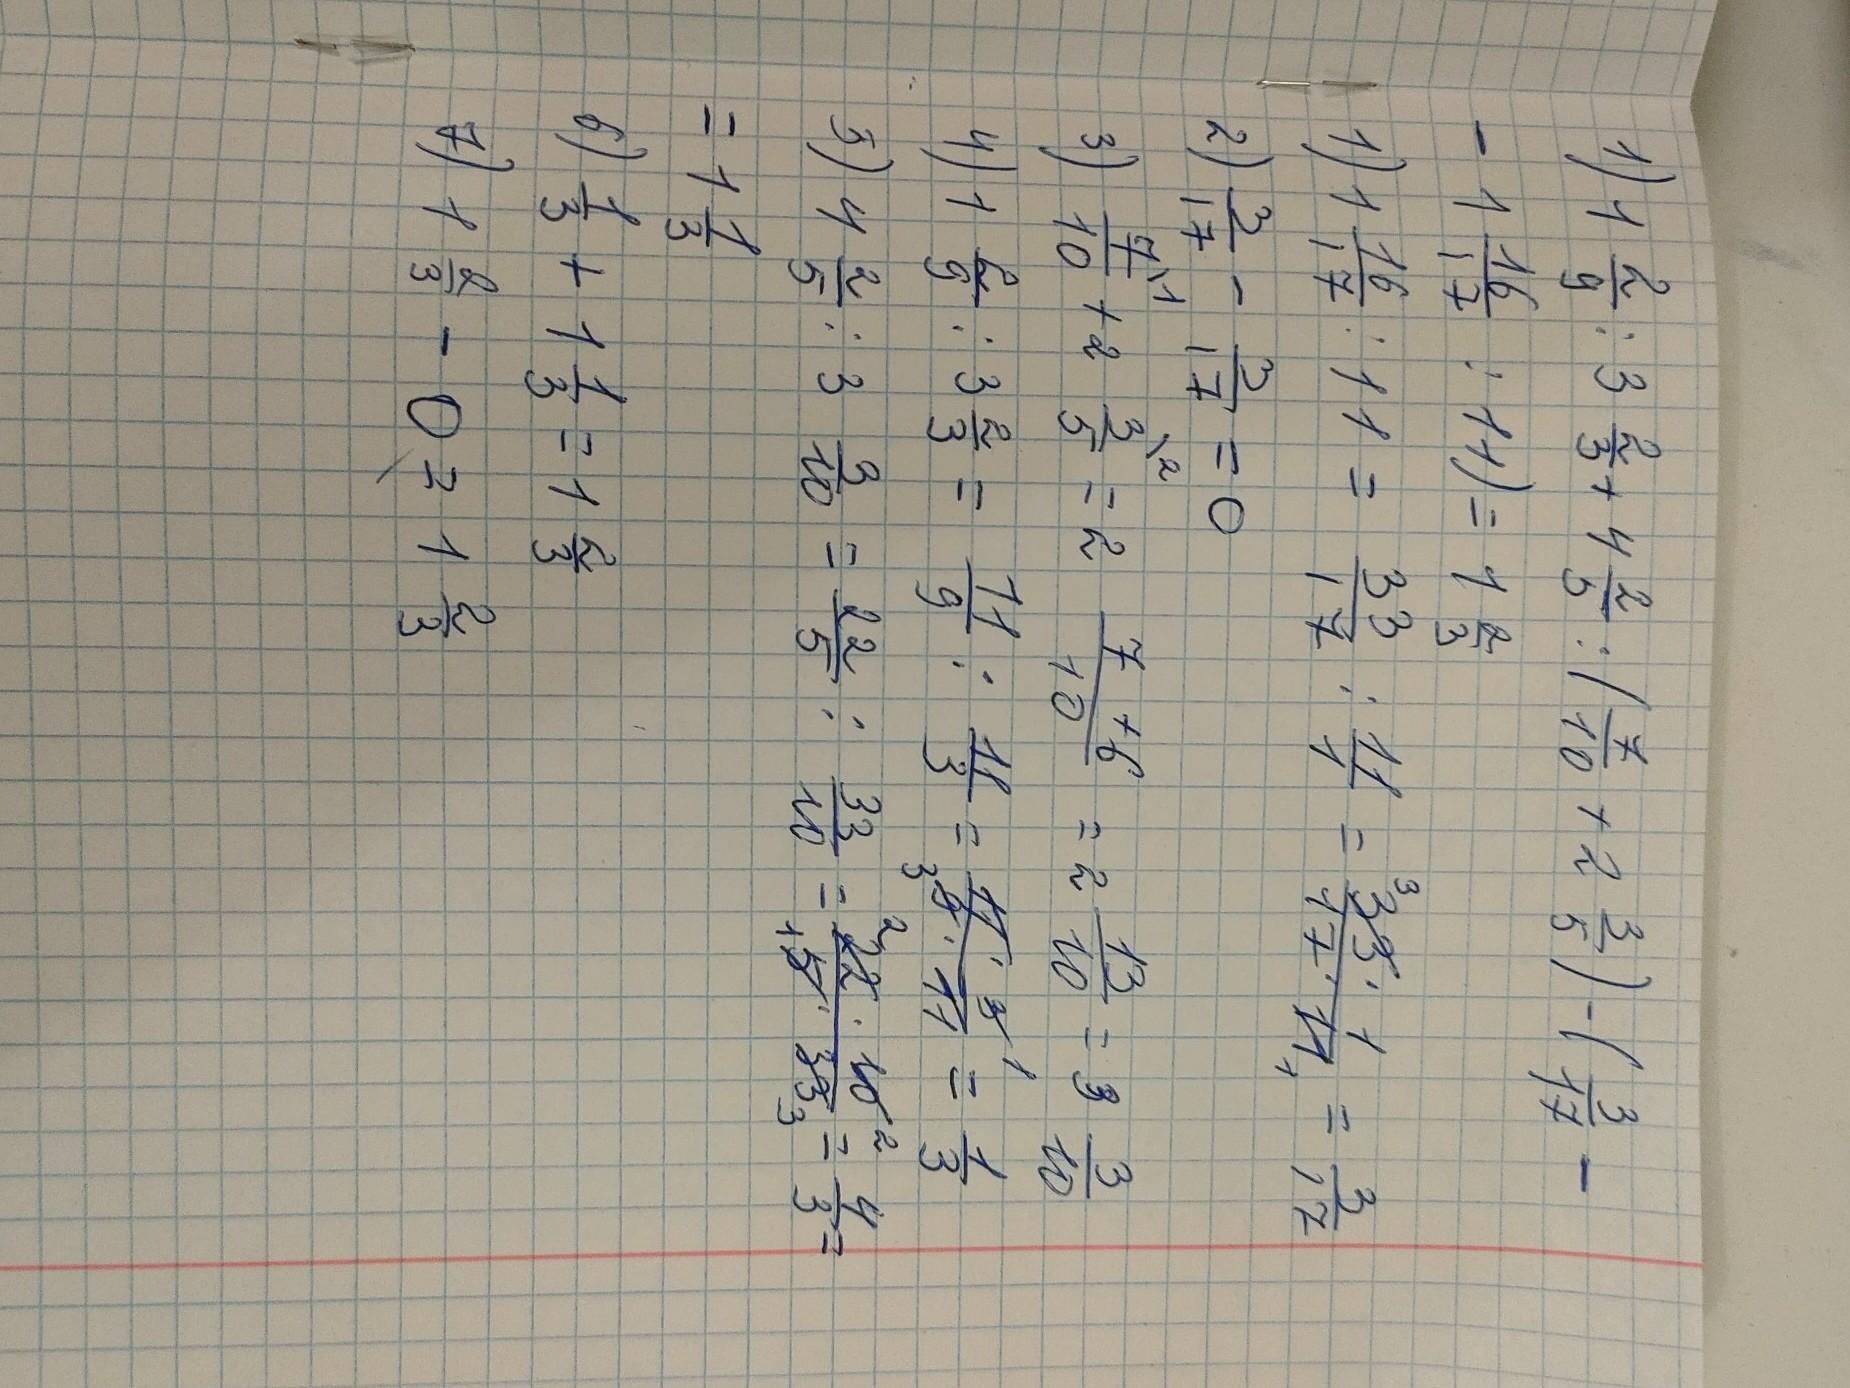 1) 1 2/9 : 3 2/3 + 4 2/5 : ( 7/10 + 2 3/5 ) - ( 3/17 -
- 1 16/17 : 11) = 1 2/3
1) 1 16/17 : 11 = 33/17 : 11/1 = 33 3 · 1 / 17 · 11 1 = 3/17
2) 3/17 - 3/17 = 0
3) 7/10 \1 + 2 3/5 \2 = 2 7+6/10 = 2 13/10 = 3 3/10
4) 1 2/9 : 3 2/3 = 11/9 : 11/3 = 11 · 3 1 / 3 9 · 11 = 1/3
5) 4 2/5 : 3 3/10 = 22/5 : 33/10 = 2 22 · 10 2 / 1 5 · 33 3 = 4/3 =
= 1 1/3
6) 1/3 + 1 1/3 = 1 2/3
7) 1 2/3 - 0 = 1 2/3